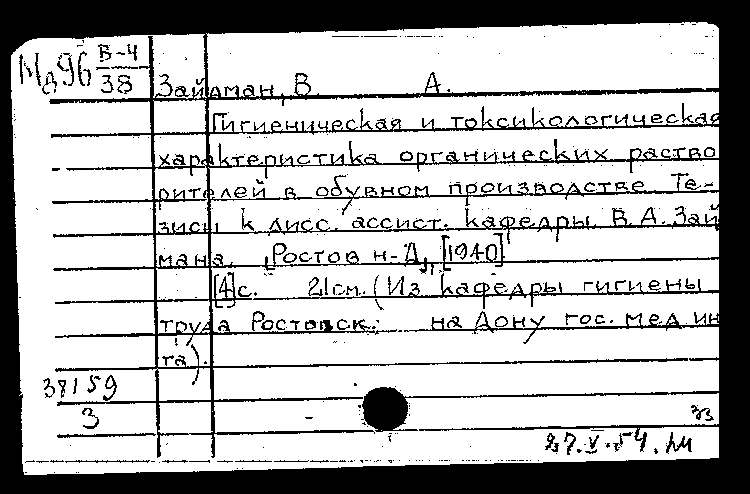 Мд96 В-4
38
Зайдман, В А.
Гигиеническая и токсикологическая
характеристика органических раство
рителей в обувном производстве. Те-
зисы к дисс. ассист. кафедры В. А. Зай
мана. [Ростов н-Д], [1940]
[4]с. 21см. (Из кафедры гигиены
труда Ростовск. на Дону гос. мед ин
та).
38159
3
27.V.54.